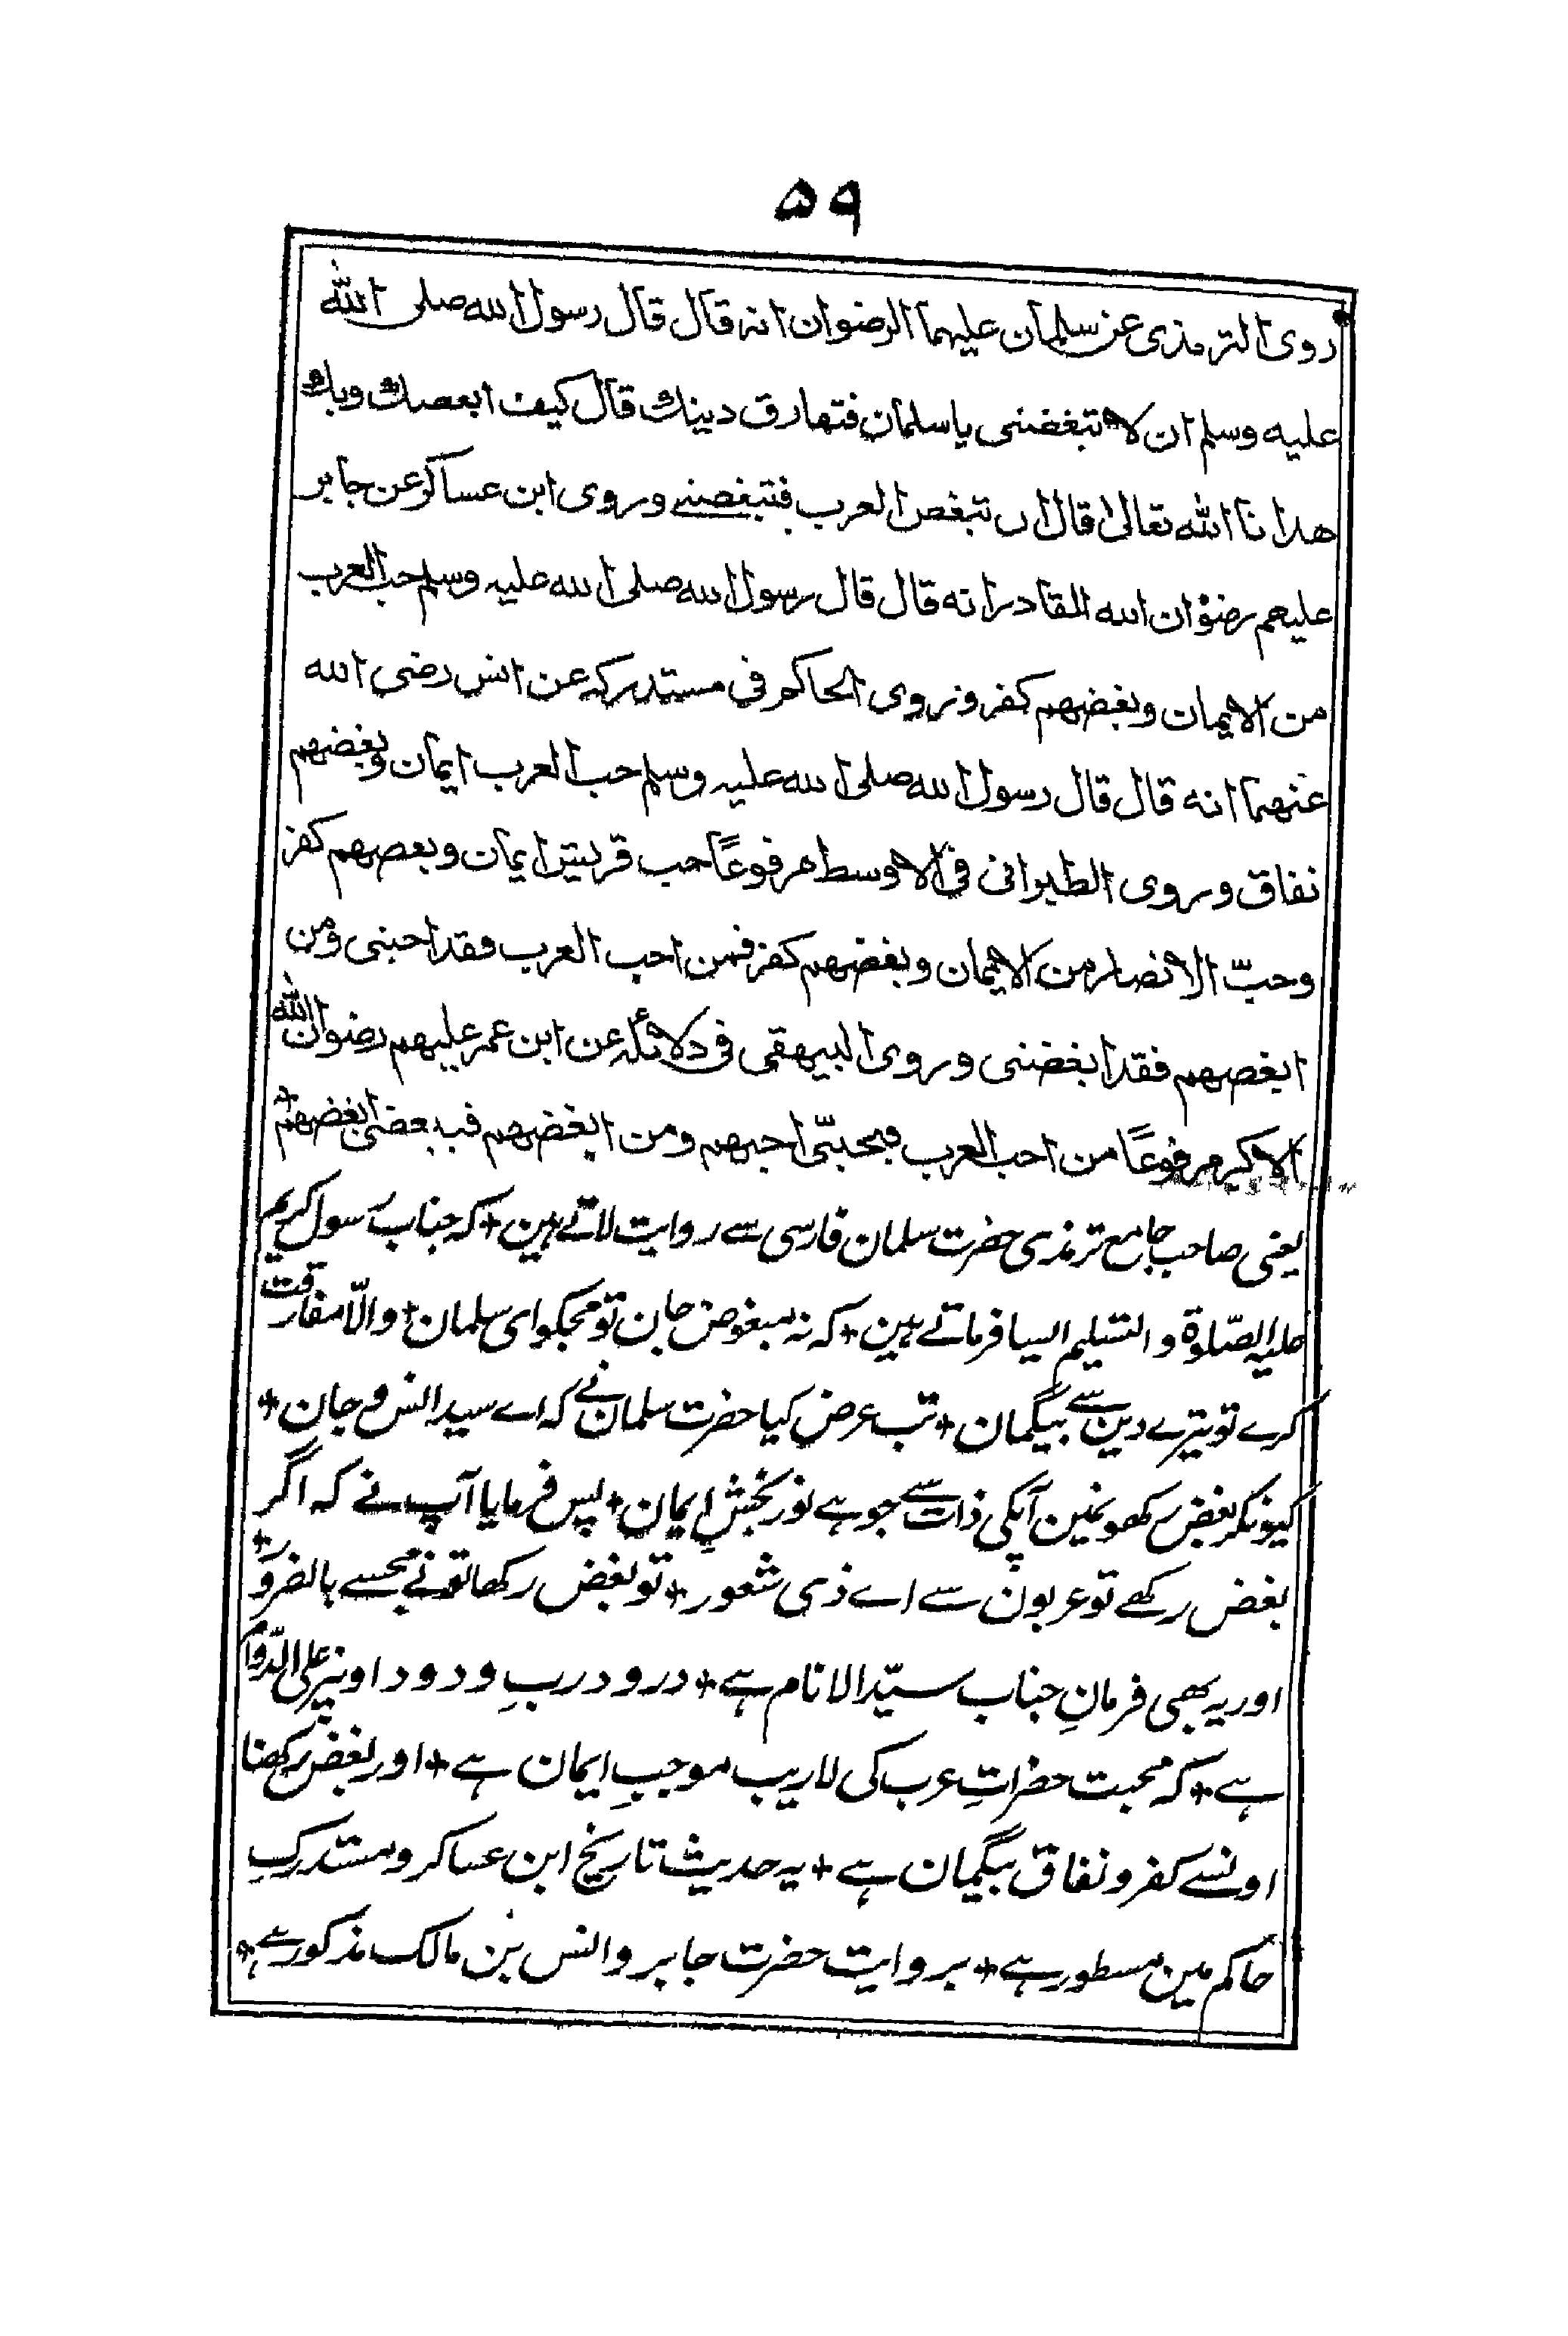 ۵۹
روی الترمذی عن سلمان علیهما الرضوان انه قال قال رسول الله صلی الله
علیه وسلم ان لا تبغضنی یا سلمان فتفارق دینك قال کیف ابغضك وبك
هدانا الله تعالیٰ قال ان تبغض العرب فتبغضنے وروی ابن عساکر عن جابر
علیهم رضوان الله القادر انه قال قال رسول الله صلی الله علیه وسلم حب العرب
من الایمان وبغضهم کفر وروی الحاکم فی مستدرکه عن انس رضی الله
عنهما انه قال قال رسول الله صلی الله علیه وسلم حب العرب ایمان وبغضهم
نفاق وروی الطبرانی فی الاوسط مرفوعًا حب قریش ایمان وبغضهم کفر
وحبّ الانصار من الایمان وبغضهم کفر فمن احب العرب فقد احبنی ومن
ابغضهم فقد ابغضنی وروی البیهقی فی دلائله عن ابن عمر علیهم رضوان الله
الاکبر مرفوعًا من احب العرب فبحبّی احبهم ومن ابغضهم فببغضی ابغضهم +
یعنی صاحب جامع ترمذی حضرت سلمان فارسی سے روایت لاتے ہین + کہ جناب رسول کریم
علیہ الصّلوۃ والتسلیم ایسا فرماتے ہین + کہ نہ مبغوض جان تو مجکو ای سلمان + والّا مفارقت
کرے تو تیرے دین سے بیگمان + تب عرض کیا حضرت سلمان نے کہ اے سید انس و جان +
کیونکر بغض رکھونمین آپکی ذات سے جو ہے نور بخشِ ایمان + پس فرمایا آپ نے کہ اگر
بغض رکھے تو عربون سے اے ذی شعور + تو بغض رکھا تو نے مجسے بالضرور +
اور یہ بھی فرمانِ جناب سیّد الانام ہے + درود ربِ ودود او نپر علی الدّوام
ہے + کہ محبت حضراتِ عرب کی لاریب موجبِ ایمان ہے + اور بغض رکھنا
اونسے کفر و نفاق بیگمان ہے + یہ حدیث تاریخ ابن عساکر و مستدرکِ
حاکم مین مسطور ہے + بروایت حضرت جابر و انس بن مالک مذکور ہے +